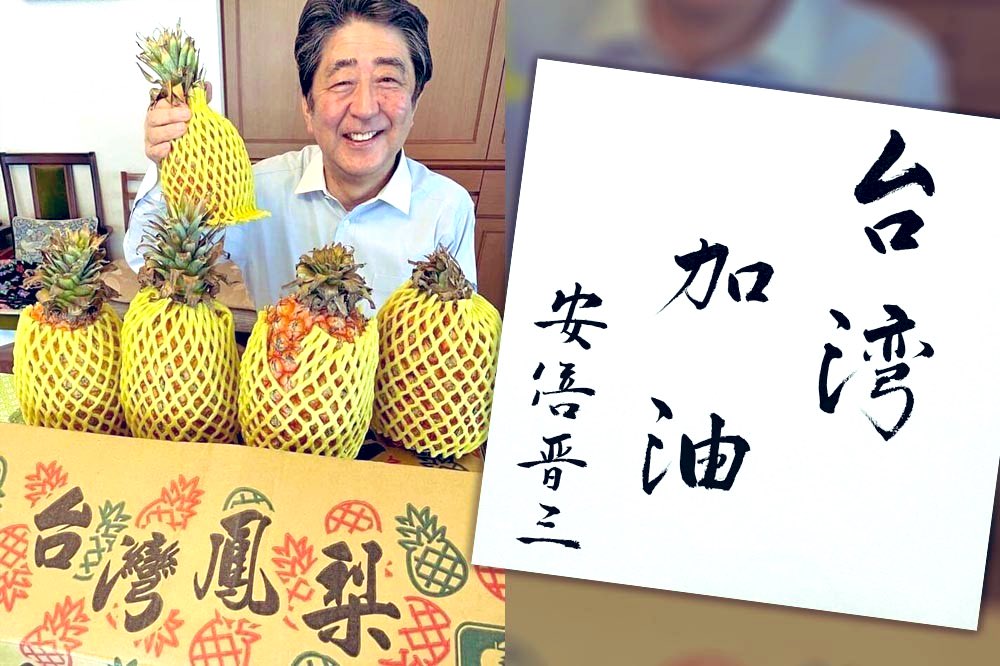 台灣鳳梨
台湾
加油
安倍晋三